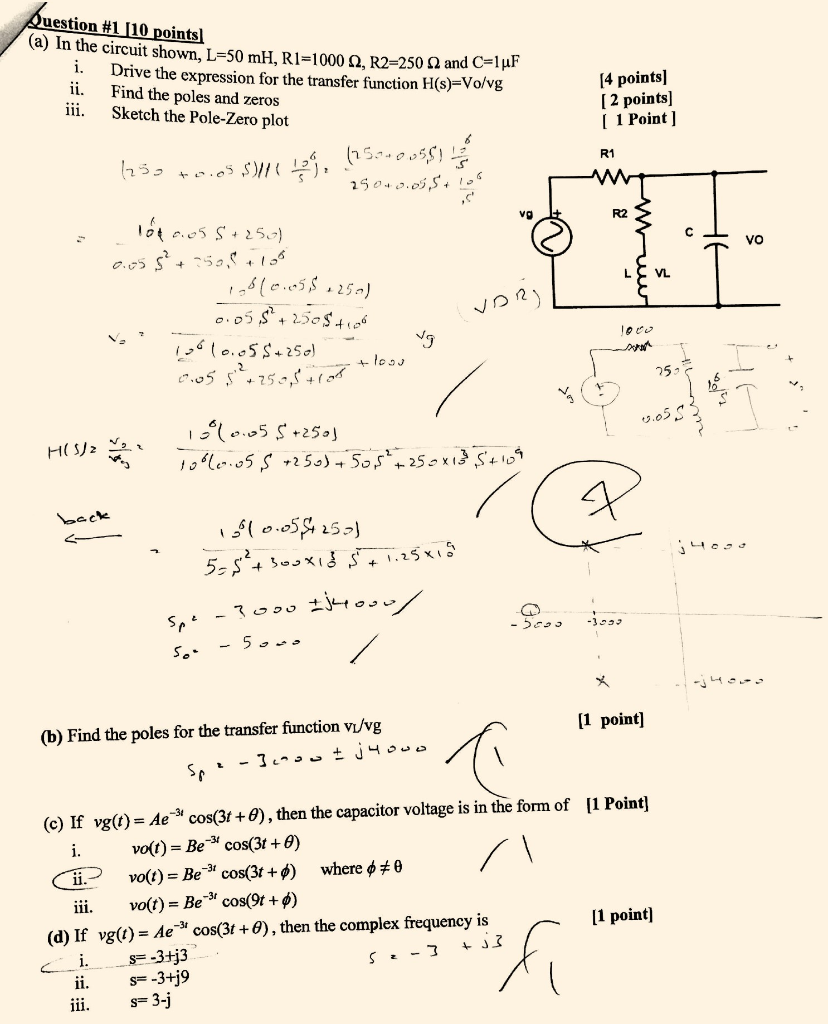 Question #1 [10 points]
(a) In the circuit shown, L=50 mH, R1=1000 Ω, R2=250 Ω and C=1μF
i. Drive the expression for the transfer function H(s)=Vo/vg [4 points]
ii. Find the poles and zeros [ 2 points]
iii. Sketch the Pole-Zero plot [ 1 Point ]
(250 + 0.05 S)//( 10^6/S ) = (250+0.05S) 10^6/S / 250+0.05S + 10^6/S
= 10^6( 0.05 S + 250) / 0.05 S^2 + 250S + 10^6
R1
R2
vg
+
C
VO
L
VL
Vo = 10^6(0.05S + 250) / 0.05 S^2 + 250S + 10^6 / 10^6(0.05S+250) / 0.05 S^2 + 250S + 10^6 + 1000 vg (VDR)
1000
250
0.05S
10^6/S
Vg
+
-
H(S) = Vo/Vg = 10^6(0.05 S +250) / 10^6(0.05 S +250) + 50S^2 + 250×10^3 S + 10^9
7
back
= 10^6( 0.05S+250) / 50S^2 + 300×10^3 S + 1.25×10^9
Sp = -3000 ± j4000
So = -5000
j4000
-5000
-3000
-j4000
(b) Find the poles for the transfer function vL/vg [1 point]
Sp = -3000 ± j4000
1
(c) If vg(t) = Ae^-3t cos(3t + θ), then the capacitor voltage is in the form of [1 Point]
i. vo(t) = Be^-3t cos(3t + θ)
ii. vo(t) = Be^-3t cos(3t + φ) where φ ≠ θ
1
iii. vo(t) = Be^-3t cos(9t + φ)
(d) If vg(t) = Ae^-3t cos(3t + θ), then the complex frequency is [1 point]
i. s= -3+j3
S = -3 + j3
1
ii. s= -3+j9
iii. s= 3-j